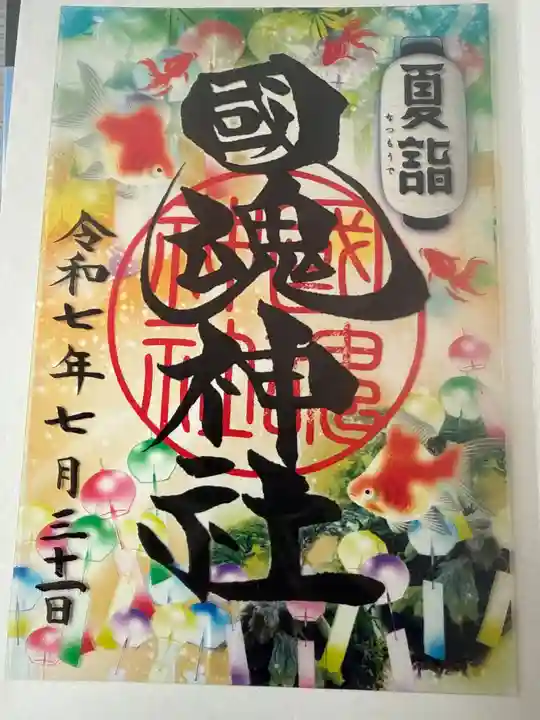 夏詣
なつもうで
國魂神社
國魂神社
令和七年七月三十一日